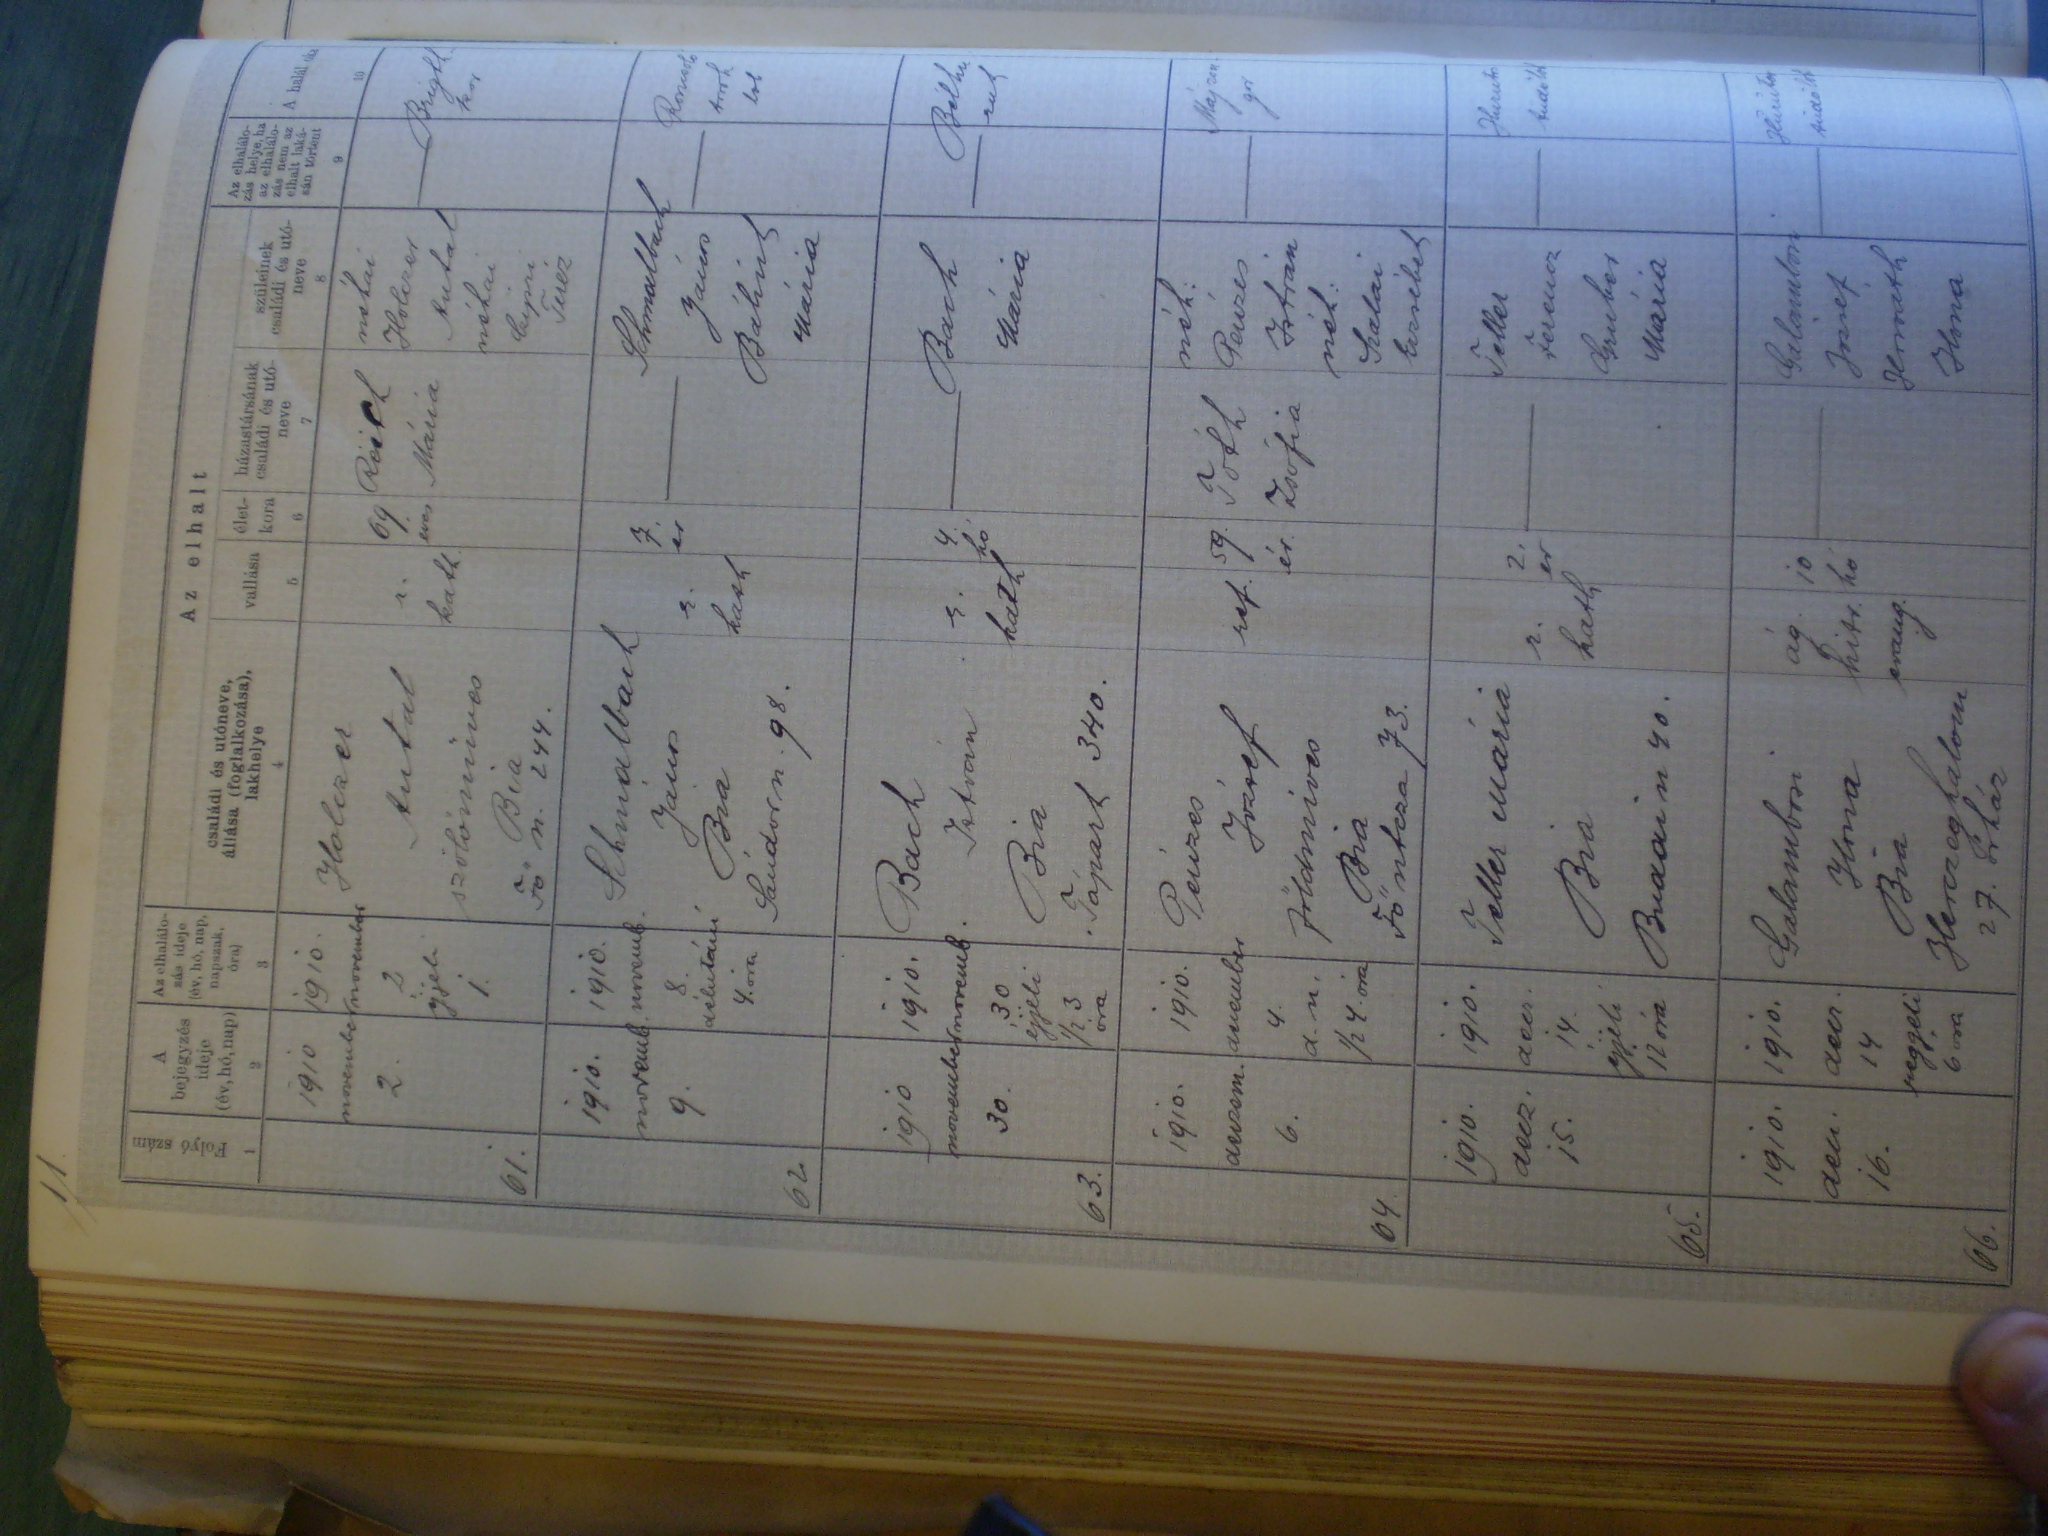 11.
Az elhalt
Folyó szám
A bejegyzés ideje (év, hó, nap)
Az elhalálo-
zás ideje
(év, hó, nap,
napszak,
óra)
családi és utóneve,
állása (foglalkozása),
lakhelye
vallása
élet-
kora
házastársának
családi és utó-
neve
szüleinek
családi és utó-
neve
Az elhalálo-
zás helye, ha
az elhalálo-
zás nem az
elhalt laká-
sán történt
A halál
1
2
3
4
5
6
7
8
9
10
61.
1910
november
2.
1910.
november
2
éjjeli
1.
Holczer
Antal
szőlőmives
Bia
Fő n. 244.
r.
kath.
69.
éves
Reich
Mária
néhai
Holczer
Antal
néhai
Teréz
62
1910.
novemb.
9.
1910.
novemb.
8.
délutáni
4. óra
Schmalbach
János
Bia
Sándor n. 98.
r.
kath
7.
év
Schmalbach
János
Bálint
Mária
63.
1910
november
30.
1910.
novemb.
30
éjjeli
1/2 3
óra
Bach
István
Bia
Tópart 340.
r.
kath
4.
hó
Bach
Mária
64.
1910.
deczem.
6.
1910.
december
4.
d. n.
1/2 4. óra
Pénzes
József
földmives
Bia
Fő utcza 73.
ref.
59.
év.
Tóth
Zsófia
néh:
Pénzes
István
néh:
Szalai
Erzsébet
65.
1910.
decz.
15.
1910.
decz.
14.
éjjeli
12 óra
Teller Mária
Bia
Budai n 40.
r.
kath
2.
év
Teller
Ferencz
Gruber
Mária
66.
1910.
decz.
16.
1910.
decz.
14
reggeli
6 óra
Galamboni
Ilona
Bia
Herczeghalom
27. őrház
ág.
hitv.
evang.
10
hó
Galamboni
József
Horváth
Ilona